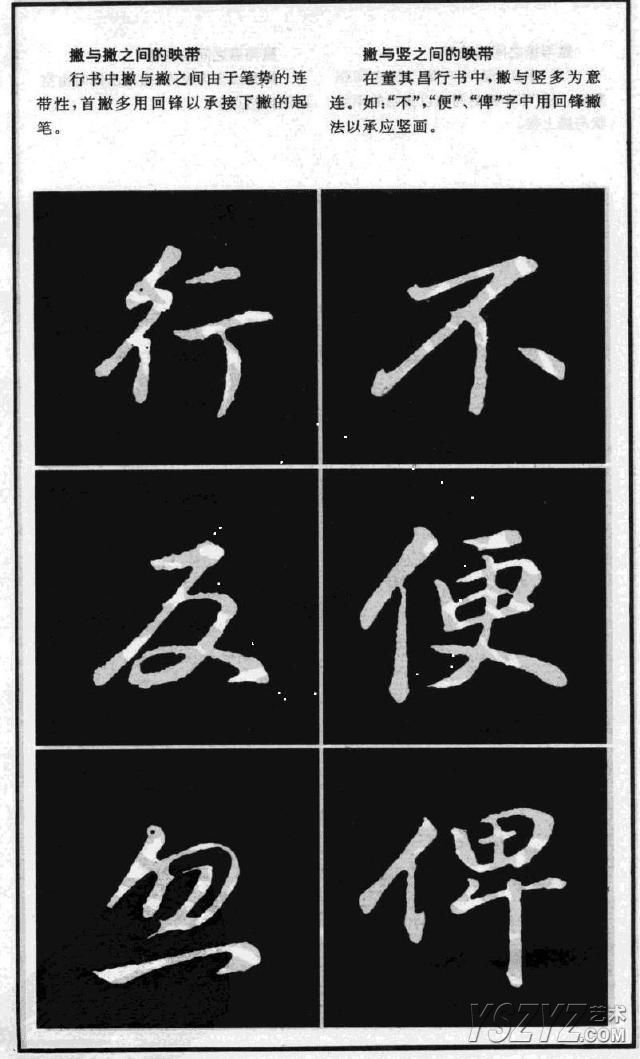 撇与撇之间的映带
行书中撇与撇之间由于笔势的连
带性,首撇多用回锋以承接下撇的起
笔。
撇与竖之间的映带
在董其昌行书中,撇与竖多为意
连。如:“不”、“便”、“俾”字中用回锋撇
法以承应竖画。
行
不
反
便
忽
俾
YSZYZ艺术
.COM